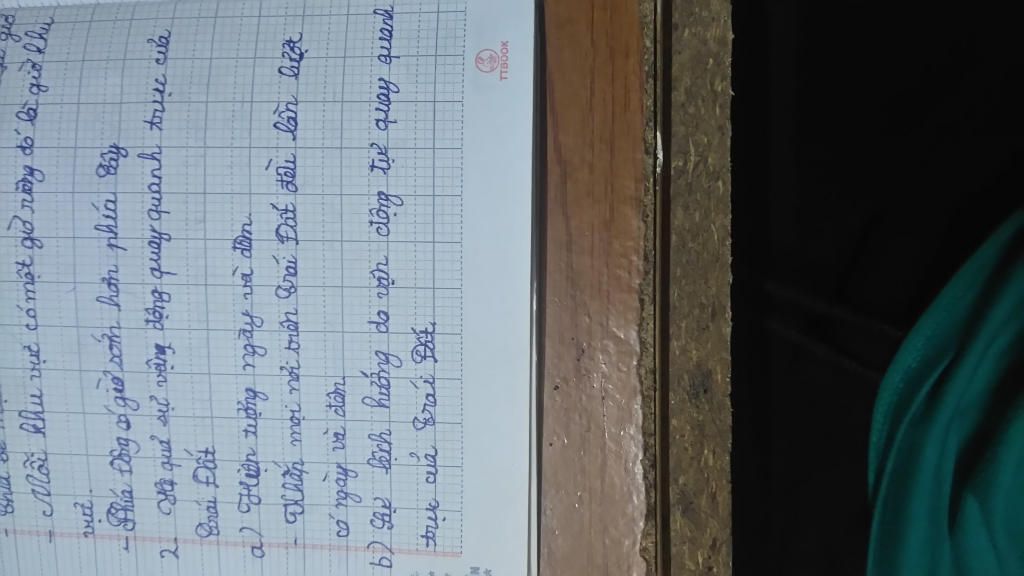 - Mỗi khu vực có một giờ riêng đó là giờ khu
vực.
- Phía Đông có giờ sớm hơn phía Tây
2. Hệ quả sự vận động quay quanh trục của
Trái Đất
a) Hiện tượng ngày và đêm
- Khắp mọi nơi trên Trái Đất đều lần lượt
có ngày và đêm
b) Sự lệch hướng do vận động tự quay quanh
trục của Trái Đất
TTBOOK